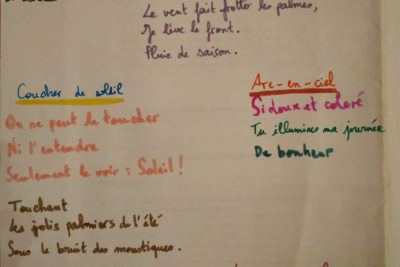 Le vent fait frotter les palmes,
Je lève le front.
Pluie de saison.
Coucher de soleil
On ne peut le toucher
Ni l'entendre
Seulement le voir : Soleil !
Touchant
Les jolis palmiers de l'été
Sous le bruit des moustiques.
Arc-en-ciel
Si doux et coloré
Tu illumines ma journée
De bonheur